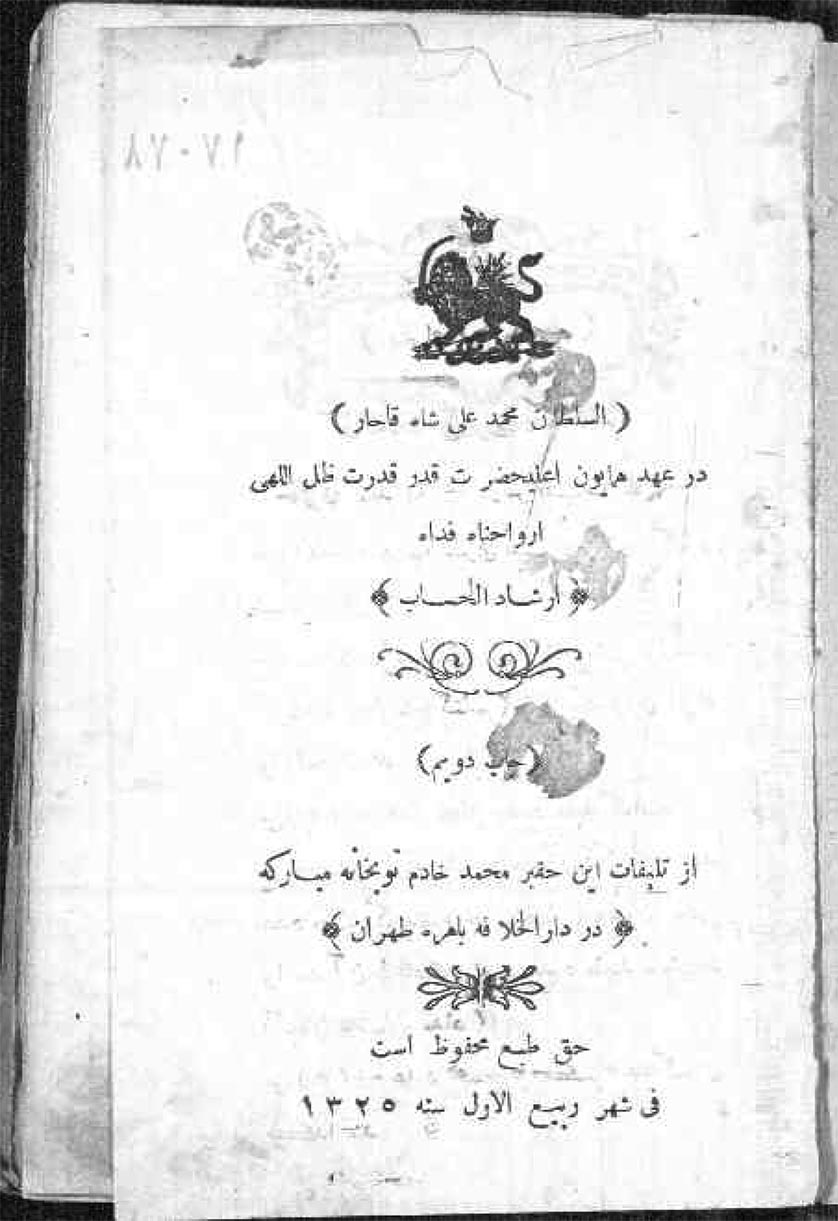 ۱۷۰۷۸
(السلطان محمد علی شاه قاجار)
در عهد همایون اعلیحضرت قدر قدرت ظل اللهی
ارواحناه فداه
﴿ارشاد الحساب﴾
(چاپ دویم)
از تلیفات این حقیر محمد خادم توپخانه مبارکه
﴿در دارالخلافه باهره طهران﴾
حق طبع محفوظ است
فی شهر ربیع الاول سنه ۱۳۲۵